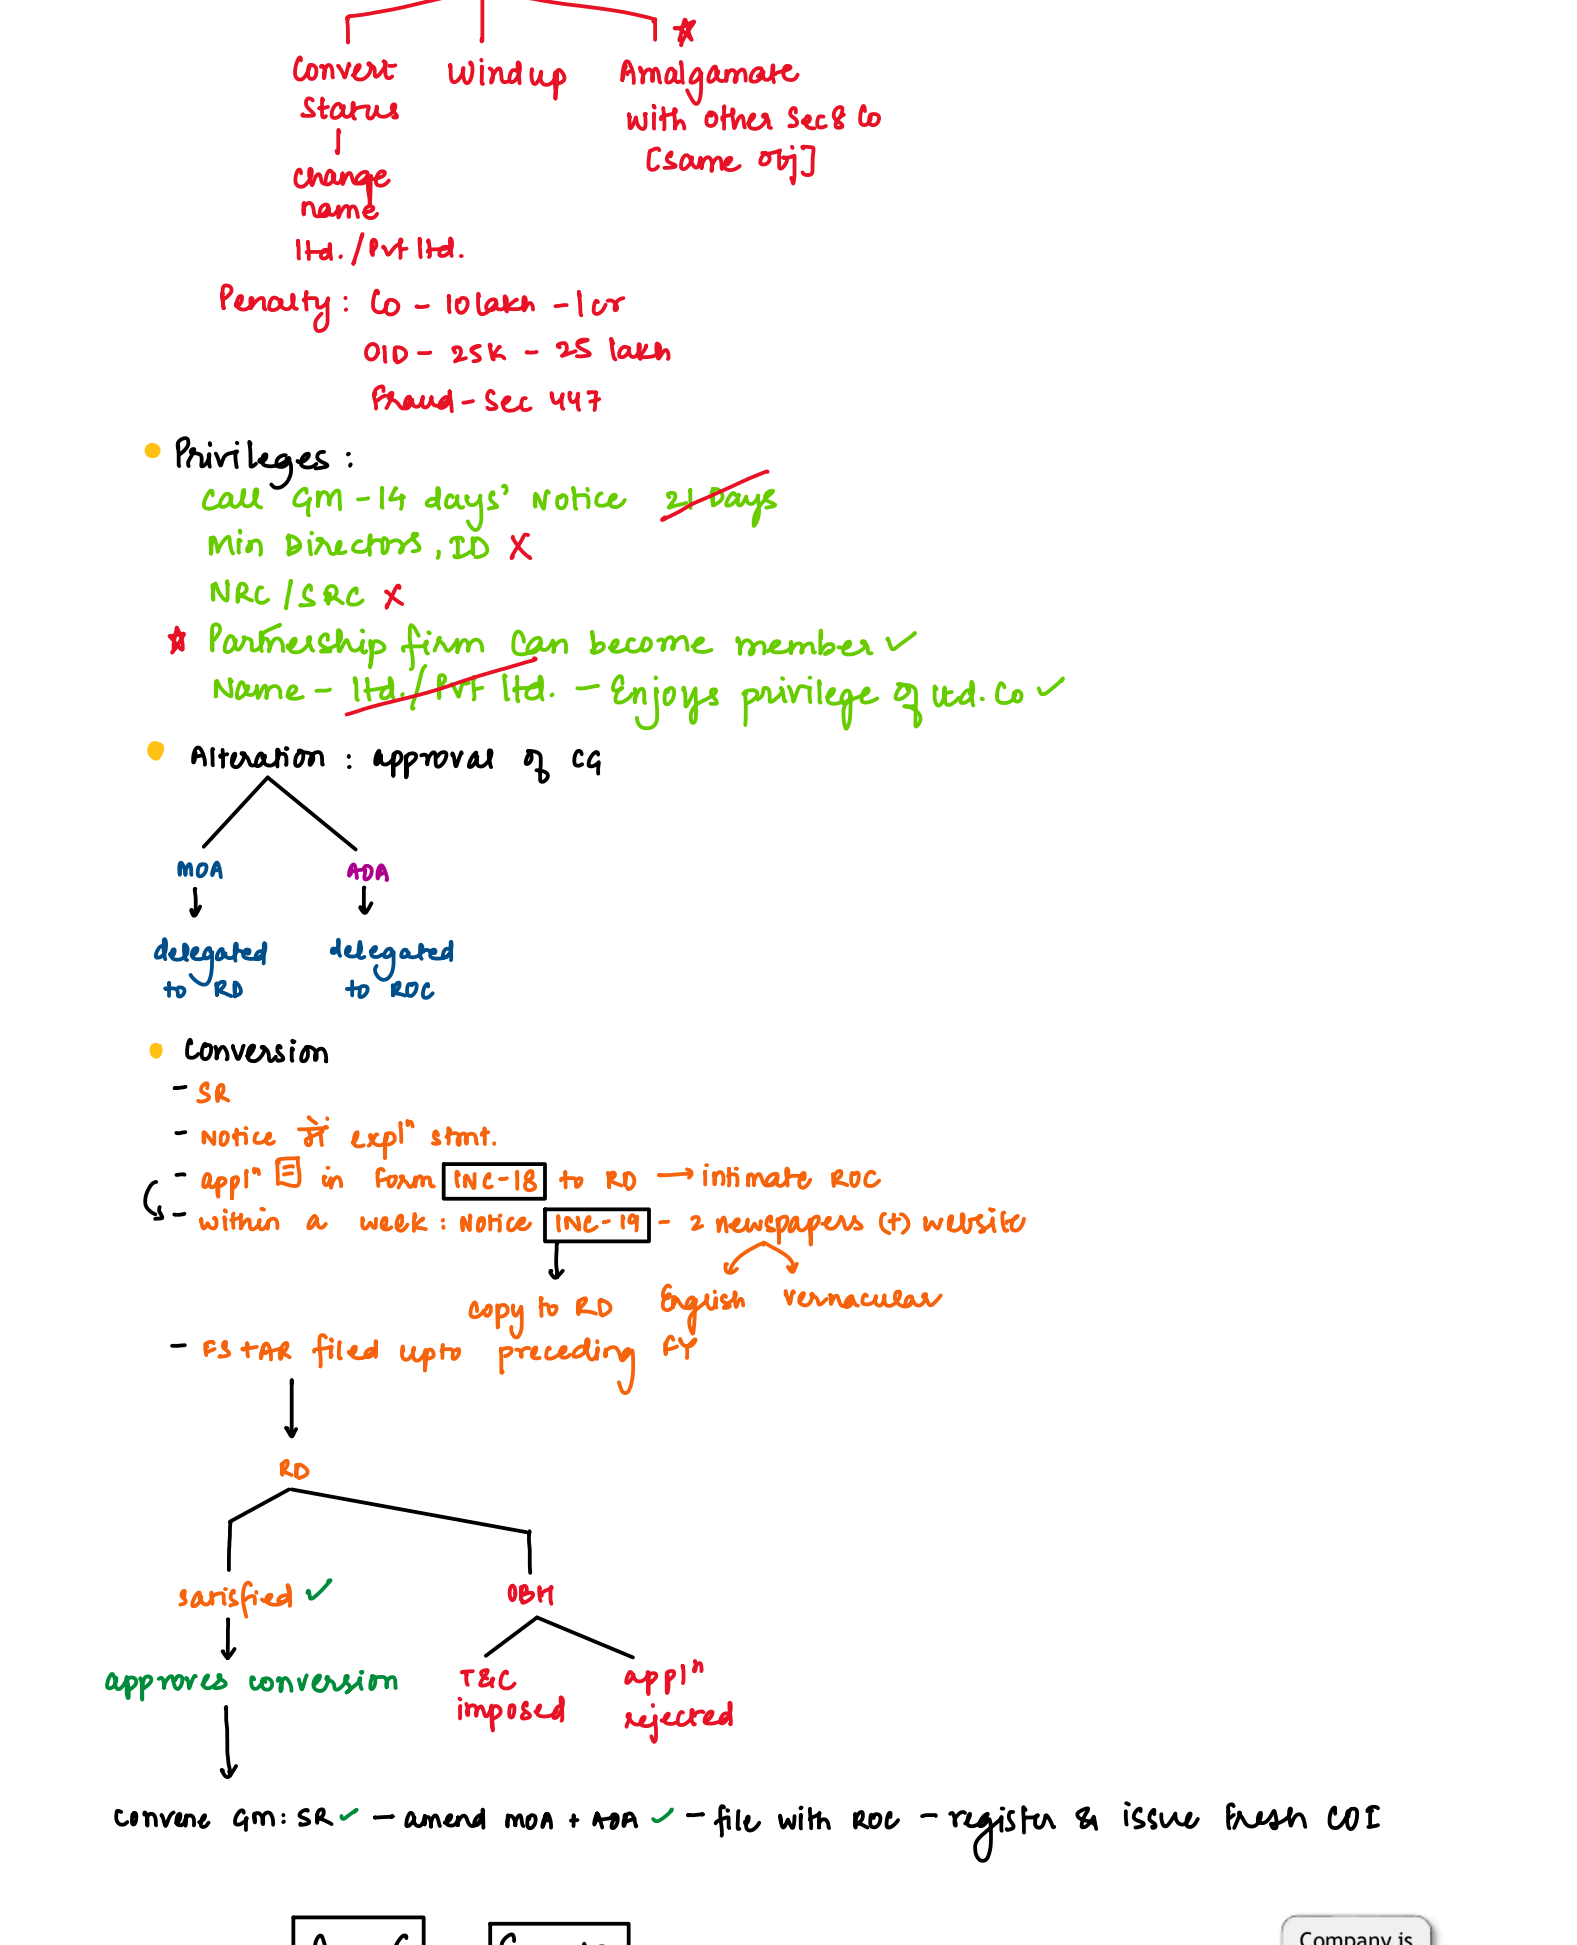 Convert Windup Amalgamate
Status with other Sec 8 Co
[same obj]
change
name
ltd. / Pvt ltd.
Penalty : Co - 10 lakh - 1 cr
OID - 25K - 25 lakh
Fraud - Sec 447
Privileges :
Call GM - 14 days' Notice 21 Days
Min Directors, ID X
NRC / SRC X
Partnership firm can become member ✓
Name - ltd. / Pvt ltd. - Enjoys privilege of ltd. Co ✓
Alteration : approval of CG
MOA AOA
delegated delegated
to RD to ROC
Conversion
- SR
- Notice में explⁿ stmt.
- applⁿ in form INC-18 to RD → intimate ROC
- within a week : Notice INC-19 - 2 newspapers (+) website
copy to RD English vernacular
- FS + AR filed upto preceding FY
RD
satisfied ✓ OBH
approves conversion T&C applⁿ
imposed rejected
Convene GM : SR ✓ - amend MOA + AOA ✓ - file with ROC - register & issue fresh COI
Company is